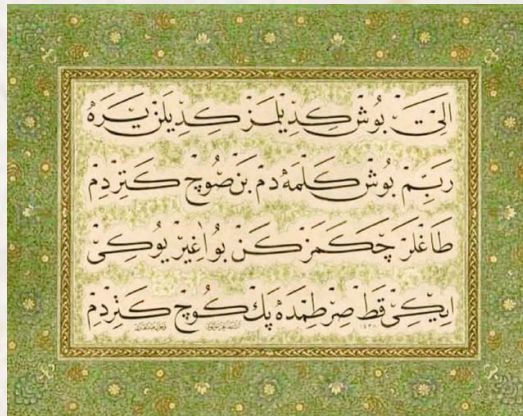 الی بوش كدیلمز كدیلن یره
ربم بوش كلمه دم بن صوچ كتردم
طاغلر چكمز كن بو اغیر یوكی
ایكی قط صرطمده پك كوچ كتردم
١٤٣٠